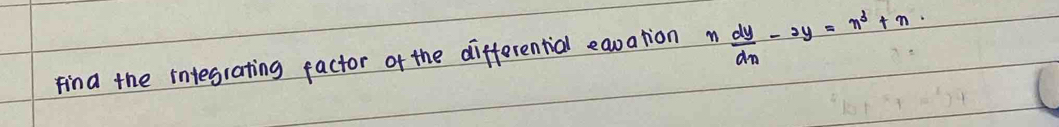 Find the integrating factor of the differential equation n dy/dn - 2y = n³ + n.